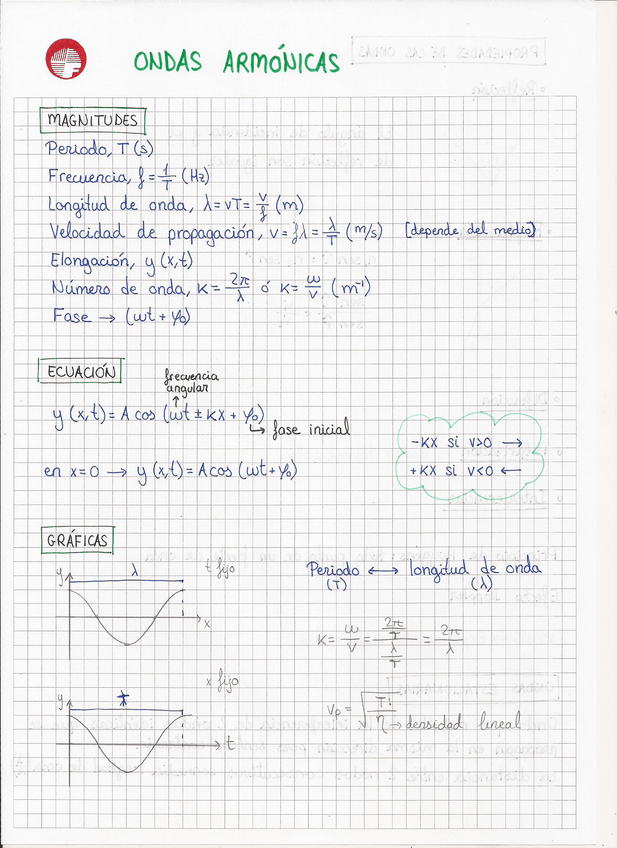 ONDAS ARMÓNICAS
MAGNITUDES
Periodo, T (s)
Frecuencia, f = 1/T (Hz)
Longitud de onda, λ = vT = v/f (m)
Velocidad de propagación, v = fλ = λ/T (m/s) [depende del medio]
Elongación, y (x,t)
Número de onda, K = 2π/λ ó K = ω/v (m⁻¹)
Fase → (ωt + φ₀)
ECUACIÓN
frecuencia
angular
y (x,t) = A cos (ωt ± KX + φ₀)
fase inicial
-KX si v>0 →
+KX si v<0 ←
en x=0 → y (x,t) = A cos (ωt + φ₀)
GRÁFICAS
t fijo
y
λ
x
Periodo ↔ longitud de onda
(T) (λ)
K = ω/v = (2π/T)/(λ/T) = 2π/λ
x fijo
y
t
vp = √(T/η) → densidad lineal